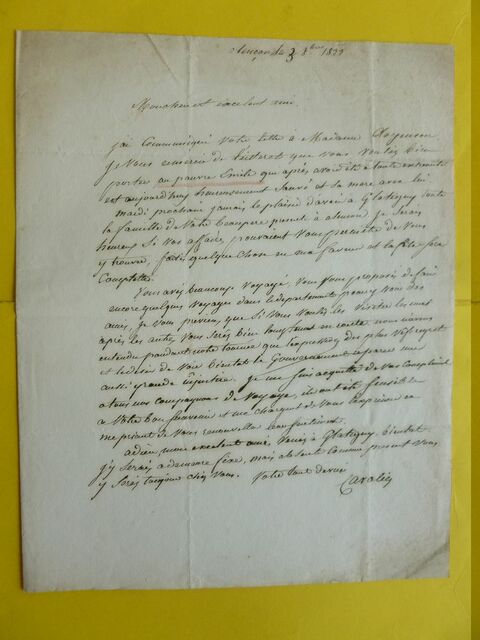 alençon le 3 8bre 1833
Mon cher et excelent ami
j'ai Communiqué Votre lettre à Madame
je Vous remercie de l'interet que Vous Voulez bien
porter au pauvre Emile qui après avoir été à toute extremité
est aujourd'huy heureusement Sauvé et Sa mere avec lui
mardi prochain j'aurai le plaisir d'avoir à Glatigny toute
la famille de Votre beaupere je Serai
heureux Si Vos affaires pouvaient Vous permettre de Vous
y trouver, faites quelque chose en ma faveur et la fête Sera
Complette.
Vous avez beaucoup Voyagé, Vous Vous proposez de faire
encore quelques Voyages dans le departement pour y Voir des
amis, je Vous previens que Si Vous Voulez les Visiter les uns
après les autres Vous Serez bien longtems en route nous n'avons
entendu pendant notre tournée que l'expression des plus vifs regrets
et le desir de Voir bientot le Gouvernement reparer une
aussi grande injustice. Je me suis acquitté de Vos Complimens
à tous nos compagnons de Voyage, ils ont été Sensibles
à Votre bon Souvenir et me chargent de Vous l'exprimer en
me priant de Vous renouveller
adieu mon excelent ami Venez à Glatigny bientot
j'y Serai à demeure fixe, mais absent Comme present Vous
y Serez toujours chez Vous. Votre tout devoué